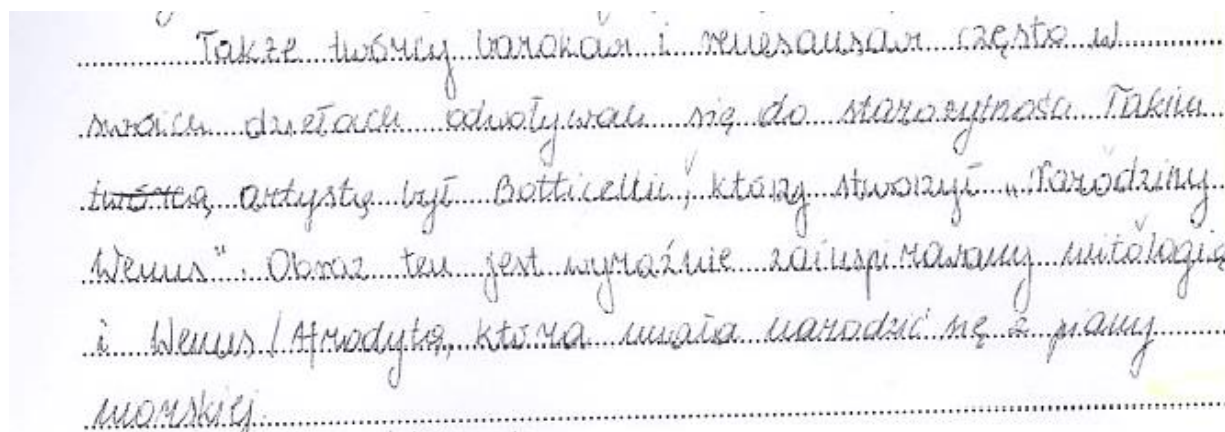 Także twórcy barokow i renesansow często w
swoich dziełach odwoływali się do starożytności Takim
twórcą artystą był Botticellii, który stworzył „Narodziny
Wenus". Obraz ten jest wyraźnie zainspirowany mitologią
i Wenus / Afrodytą, która miała narodzić się z piany
morskiej.